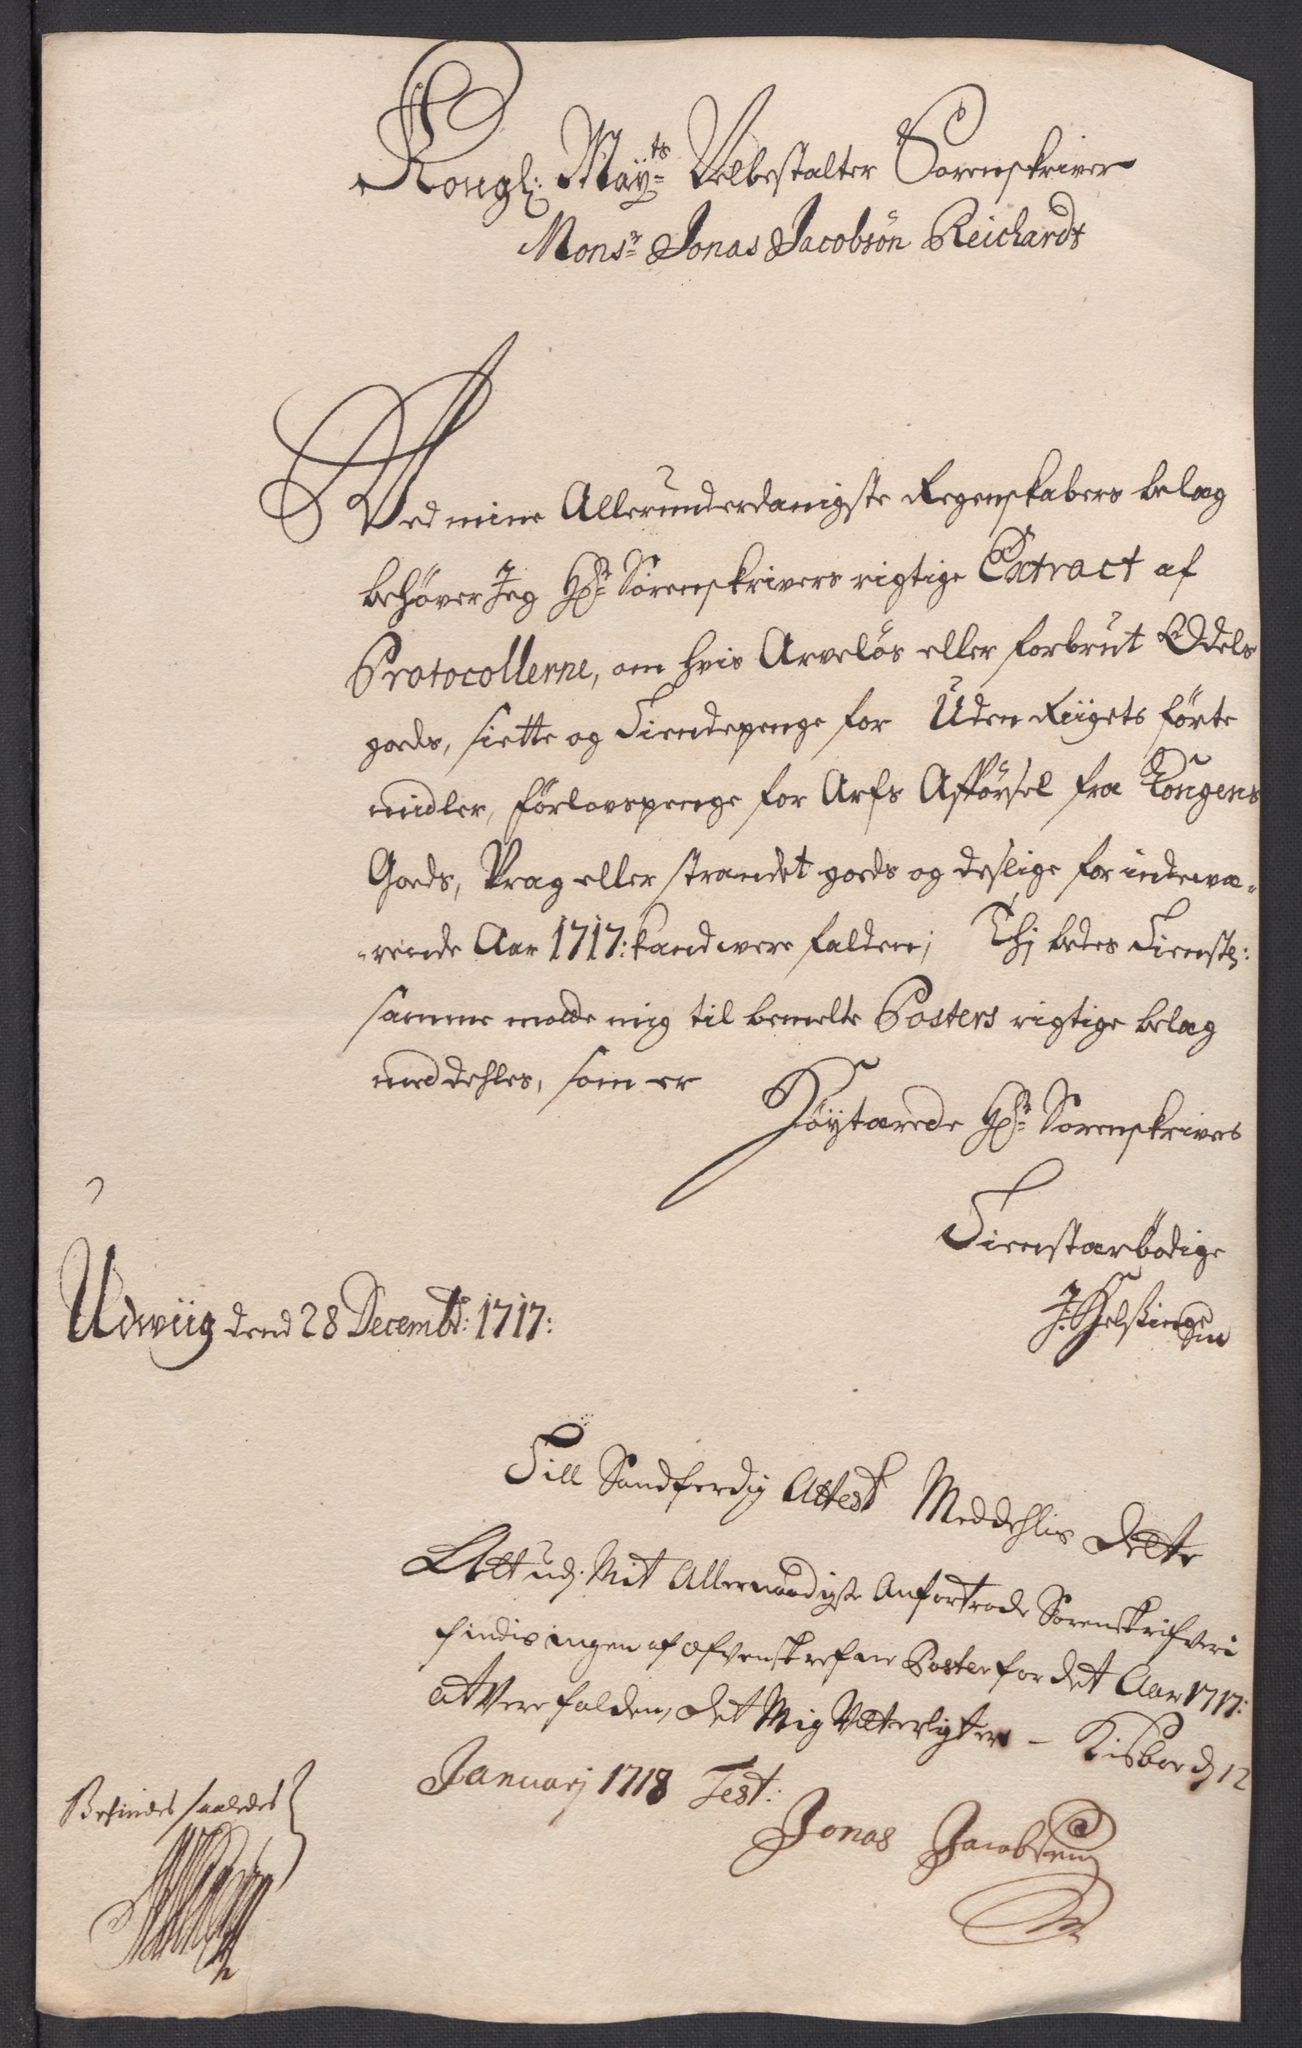 Kongl: May:ts Velbestalter Sorenskriver
Mons:r Jonas Jacobsön Reichardt
Ved mine Allerunderdanigste Regenskabers belæg
behöver Jeg H:r Sörenskrivers rigtige Extract af
Protocollerne, om hvis Arvelös eller forbrut Odels
goeds, siette og Tiendepenge for Uden Riigets förte
midler, förlovspenge for Arfs Afförsel fra Kongens
Goeds, Vrag eller strandet goeds og deslige for indewæ-
-rende Aar 1717: kand were falden; Thj bedes Tienstl:
samme motte mig til bemelte Posters rigtige belæg
meddehles, som er
Höytærede H:r Sorenskrivers
Tienstærbödige
Udwiig dend 28 Decembr: 1717:
Till Sandferdig Attest Meddehlis dette
Att udj Mit Allernaadigste Anfortrode Sorenskrifveri
findis ingen af ofvenskrefne Poster for det Aar 1717:
at Vere falden, det Mig Vitterligt er - d 12
Januarj 1718 Test:
Jonas Jacobsen
Befindes saaledes